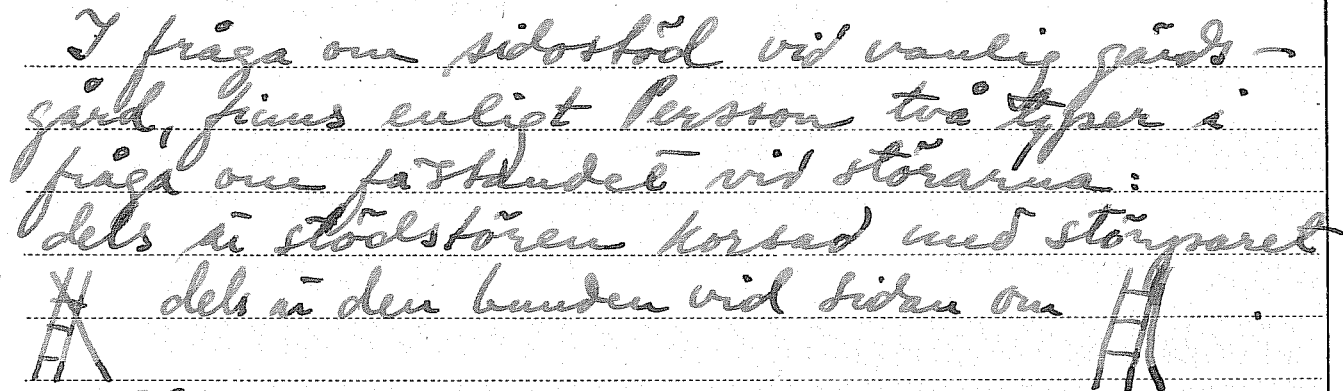 I fråga om sidostöd vid vanlig gärds-
gård, finns enligt Persson två typer i
fråga om fästandet vid störarna:
dels är stödstören korsad med störparet
dels är den bunden vid sidan om .